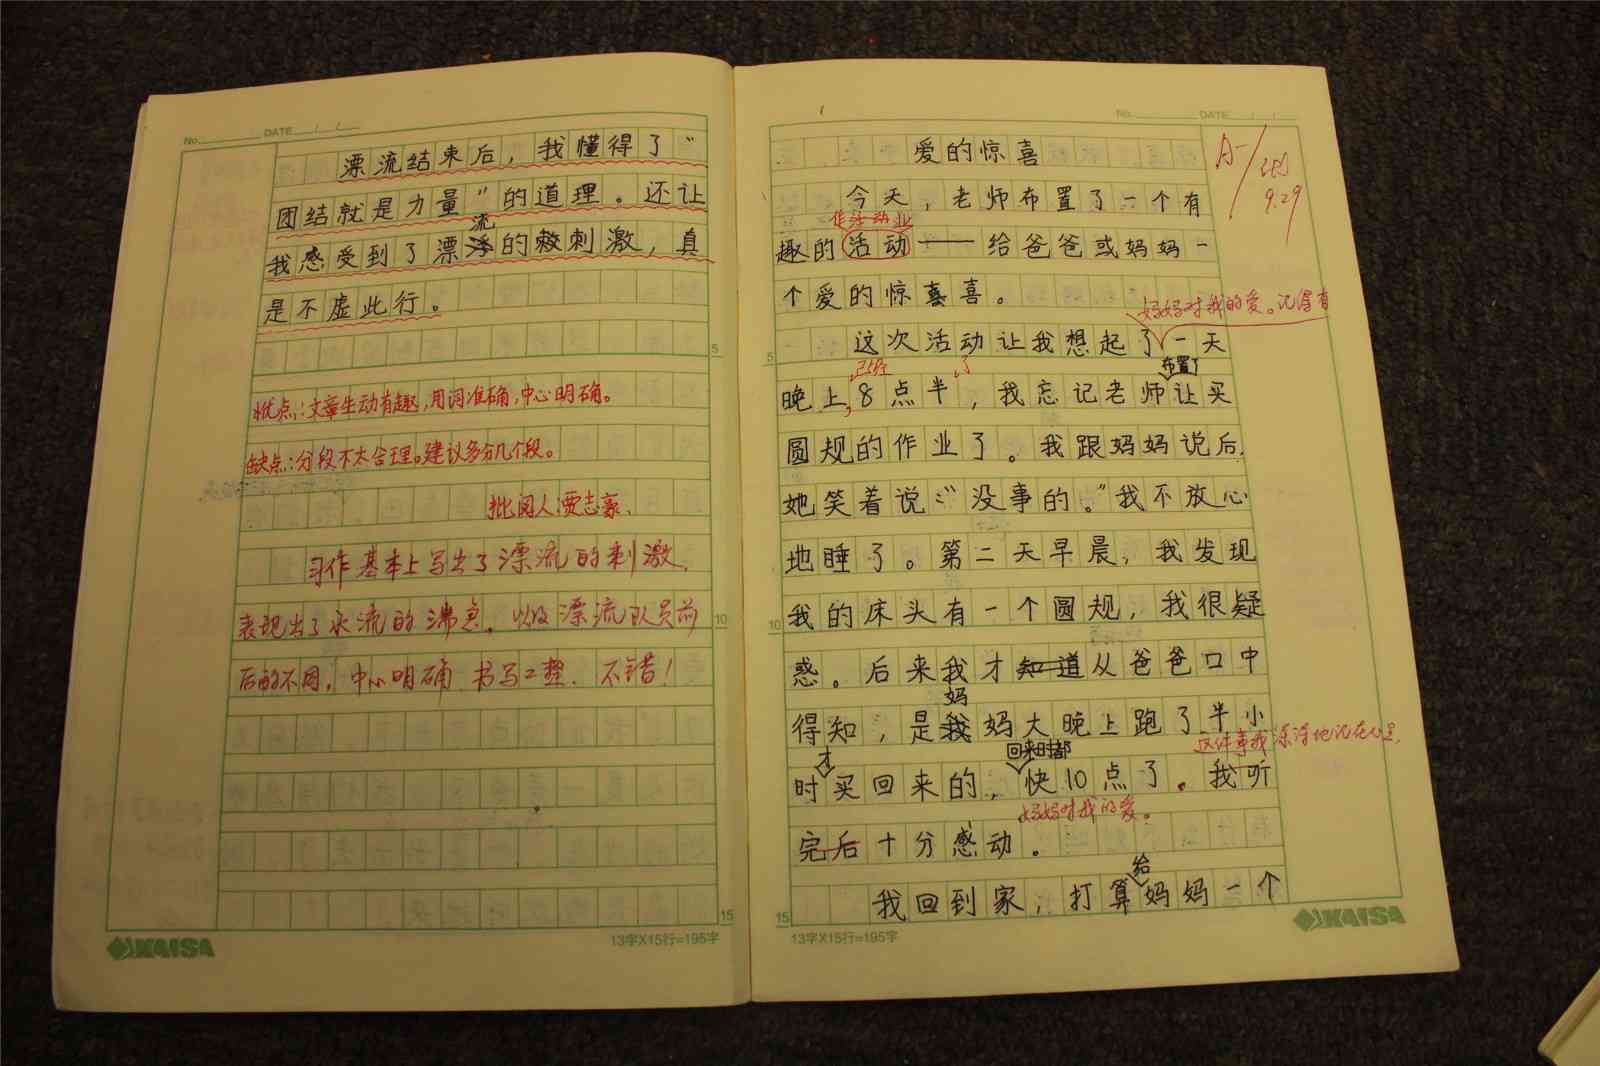 No. DATE / /
漂流结束后，我懂得了“
团结就是力量”的道理。还让
流
我感受到了漂浮的刺激，真
是不虚此行。
5
优点：文章生动有趣，用词准确，中心明确。
缺点：分段不太合理。建议多分几个段。
批阅人贾志豪、
习作基本上写出了漂流的刺激，
表现出了水流的沸急，以及漂流队员前
10
后的不同，中心明确 书写工整，不错！
15
KAISA
13字X15行=195字
No. DATE / /
A-
9.29
爱的惊喜
今天，老师布置了一个有
趣的活动——给爸爸或妈妈一
个爱的惊喜。
妈妈对我的爱。记得有
这次活动让我想起了一天
5
已经 了 布置了
晚上，8点半，我忘记老师让买
圆规的作业了。我跟妈妈说后，
她笑着说：“没事的。”我不放心
地睡了。第二天早晨，我发现
我的床头有一个圆规，我很疑
10
惑。后来我才知道从爸爸口中
妈
得知，是我妈大晚上跑了半小
这件事我深深地记在心里，
才 回来时都
时买回来的，快10点了。我听
妈妈对我的爱。
完后十分感动。
给
我回到家，打算妈妈一个
15
13字X15行=195字
KAISA